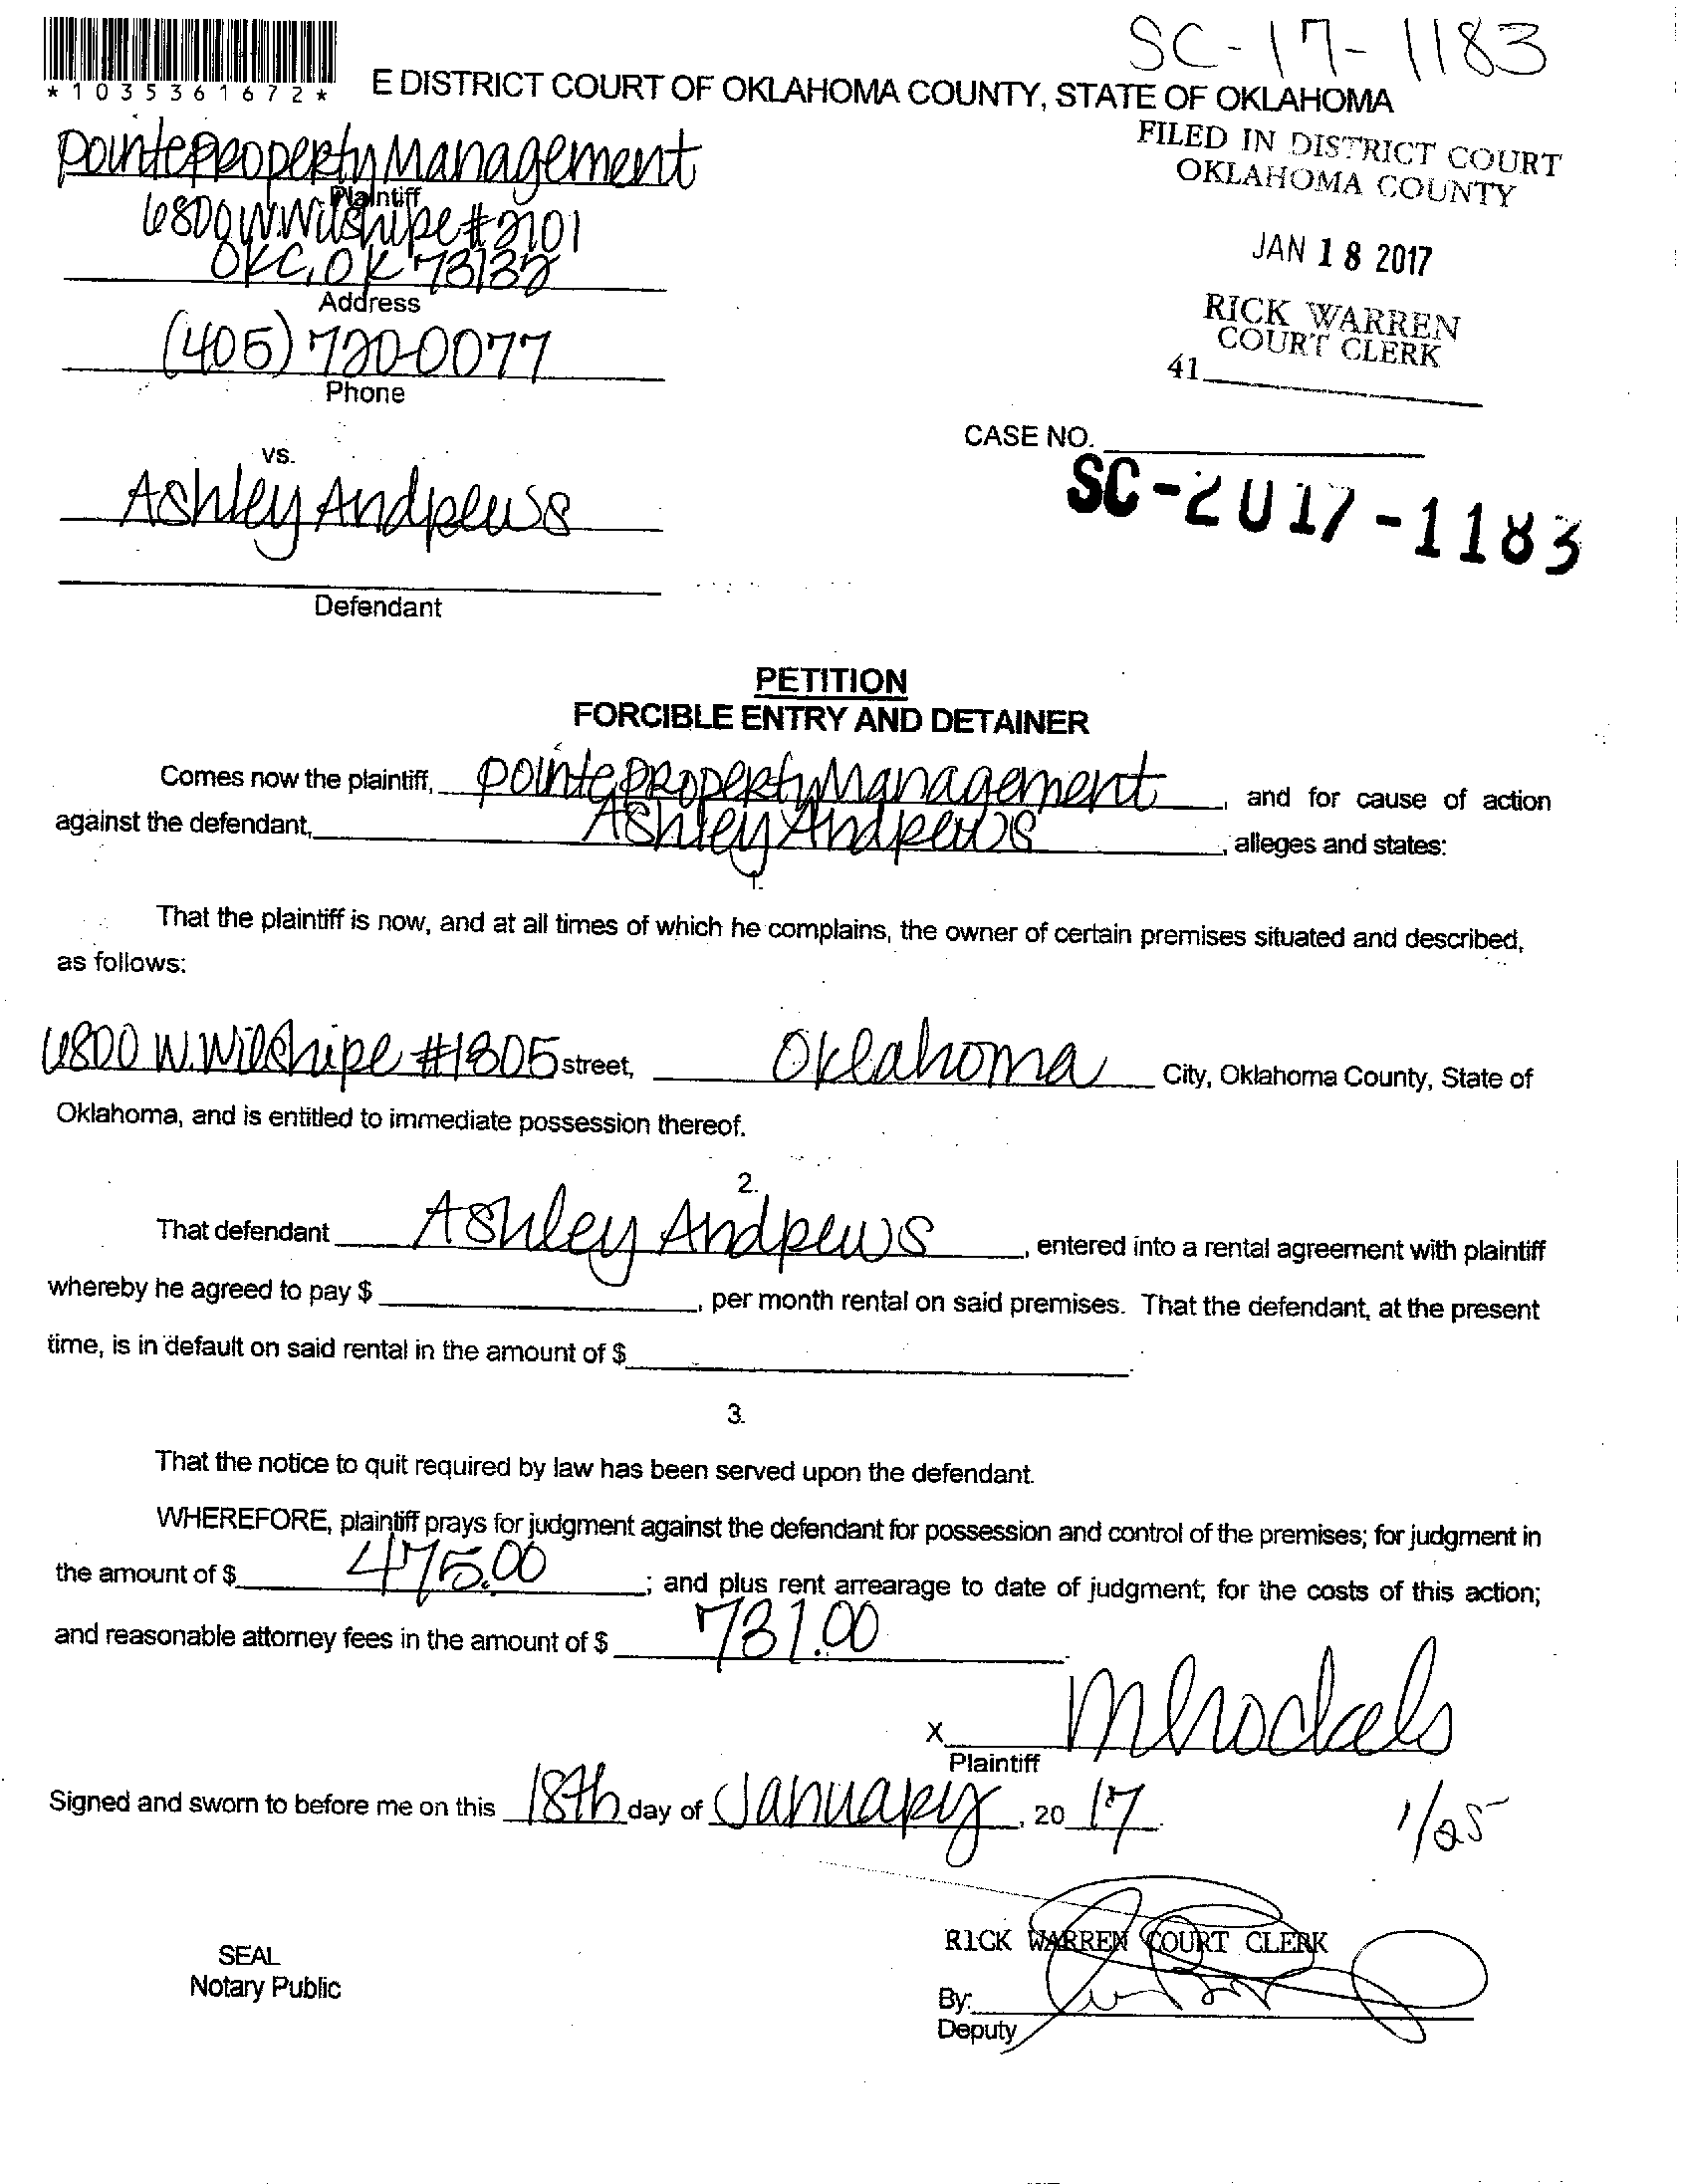 SC-17-1183
*1035361672*
E DISTRICT COURT OF OKLAHOMA COUNTY, STATE OF OKLAHOMA
Pointe Property Management
Plaintiff
6800 W. Wilshire #2101
OKC, OK 73132
Address
(405) 720-0077
Phone
FILED IN DISTRICT COURT
OKLAHOMA COUNTY
JAN 18 2017
RICK WARREN
COURT CLERK
41
CASE NO.
SC-2017-1183
vs.
Ashley Andrews
Defendant
PETITION
FORCIBLE ENTRY AND DETAINER
Comes now the plaintiff, Pointe Property Management, and for cause of action
against the defendant, Ashley Andrews, alleges and states:
1.
That the plaintiff is now, and at all times of which he complains, the owner of certain premises situated and described,
as follows:
6800 W. Wilshire #1305 street, Oklahoma City, Oklahoma County, State of
Oklahoma, and is entitled to immediate possession thereof.
2.
That defendant Ashley Andrews, entered into a rental agreement with plaintiff
whereby he agreed to pay $, per month rental on said premises. That the defendant, at the present
time, is in default on said rental in the amount of $.
3.
That the notice to quit required by law has been served upon the defendant.
WHEREFORE, plaintiff prays for judgment against the defendant for possession and control of the premises; for judgment in
the amount of $ 475.00; and plus rent arrearage to date of judgment; for the costs of this action;
and reasonable attorney fees in the amount of $ 731.00
X
Plaintiff
Signed and sworn to before me on this 18th day of January, 20 17.
1/25
RICK WARREN COURT CLERK
SEAL
Notary Public
By:
Deputy